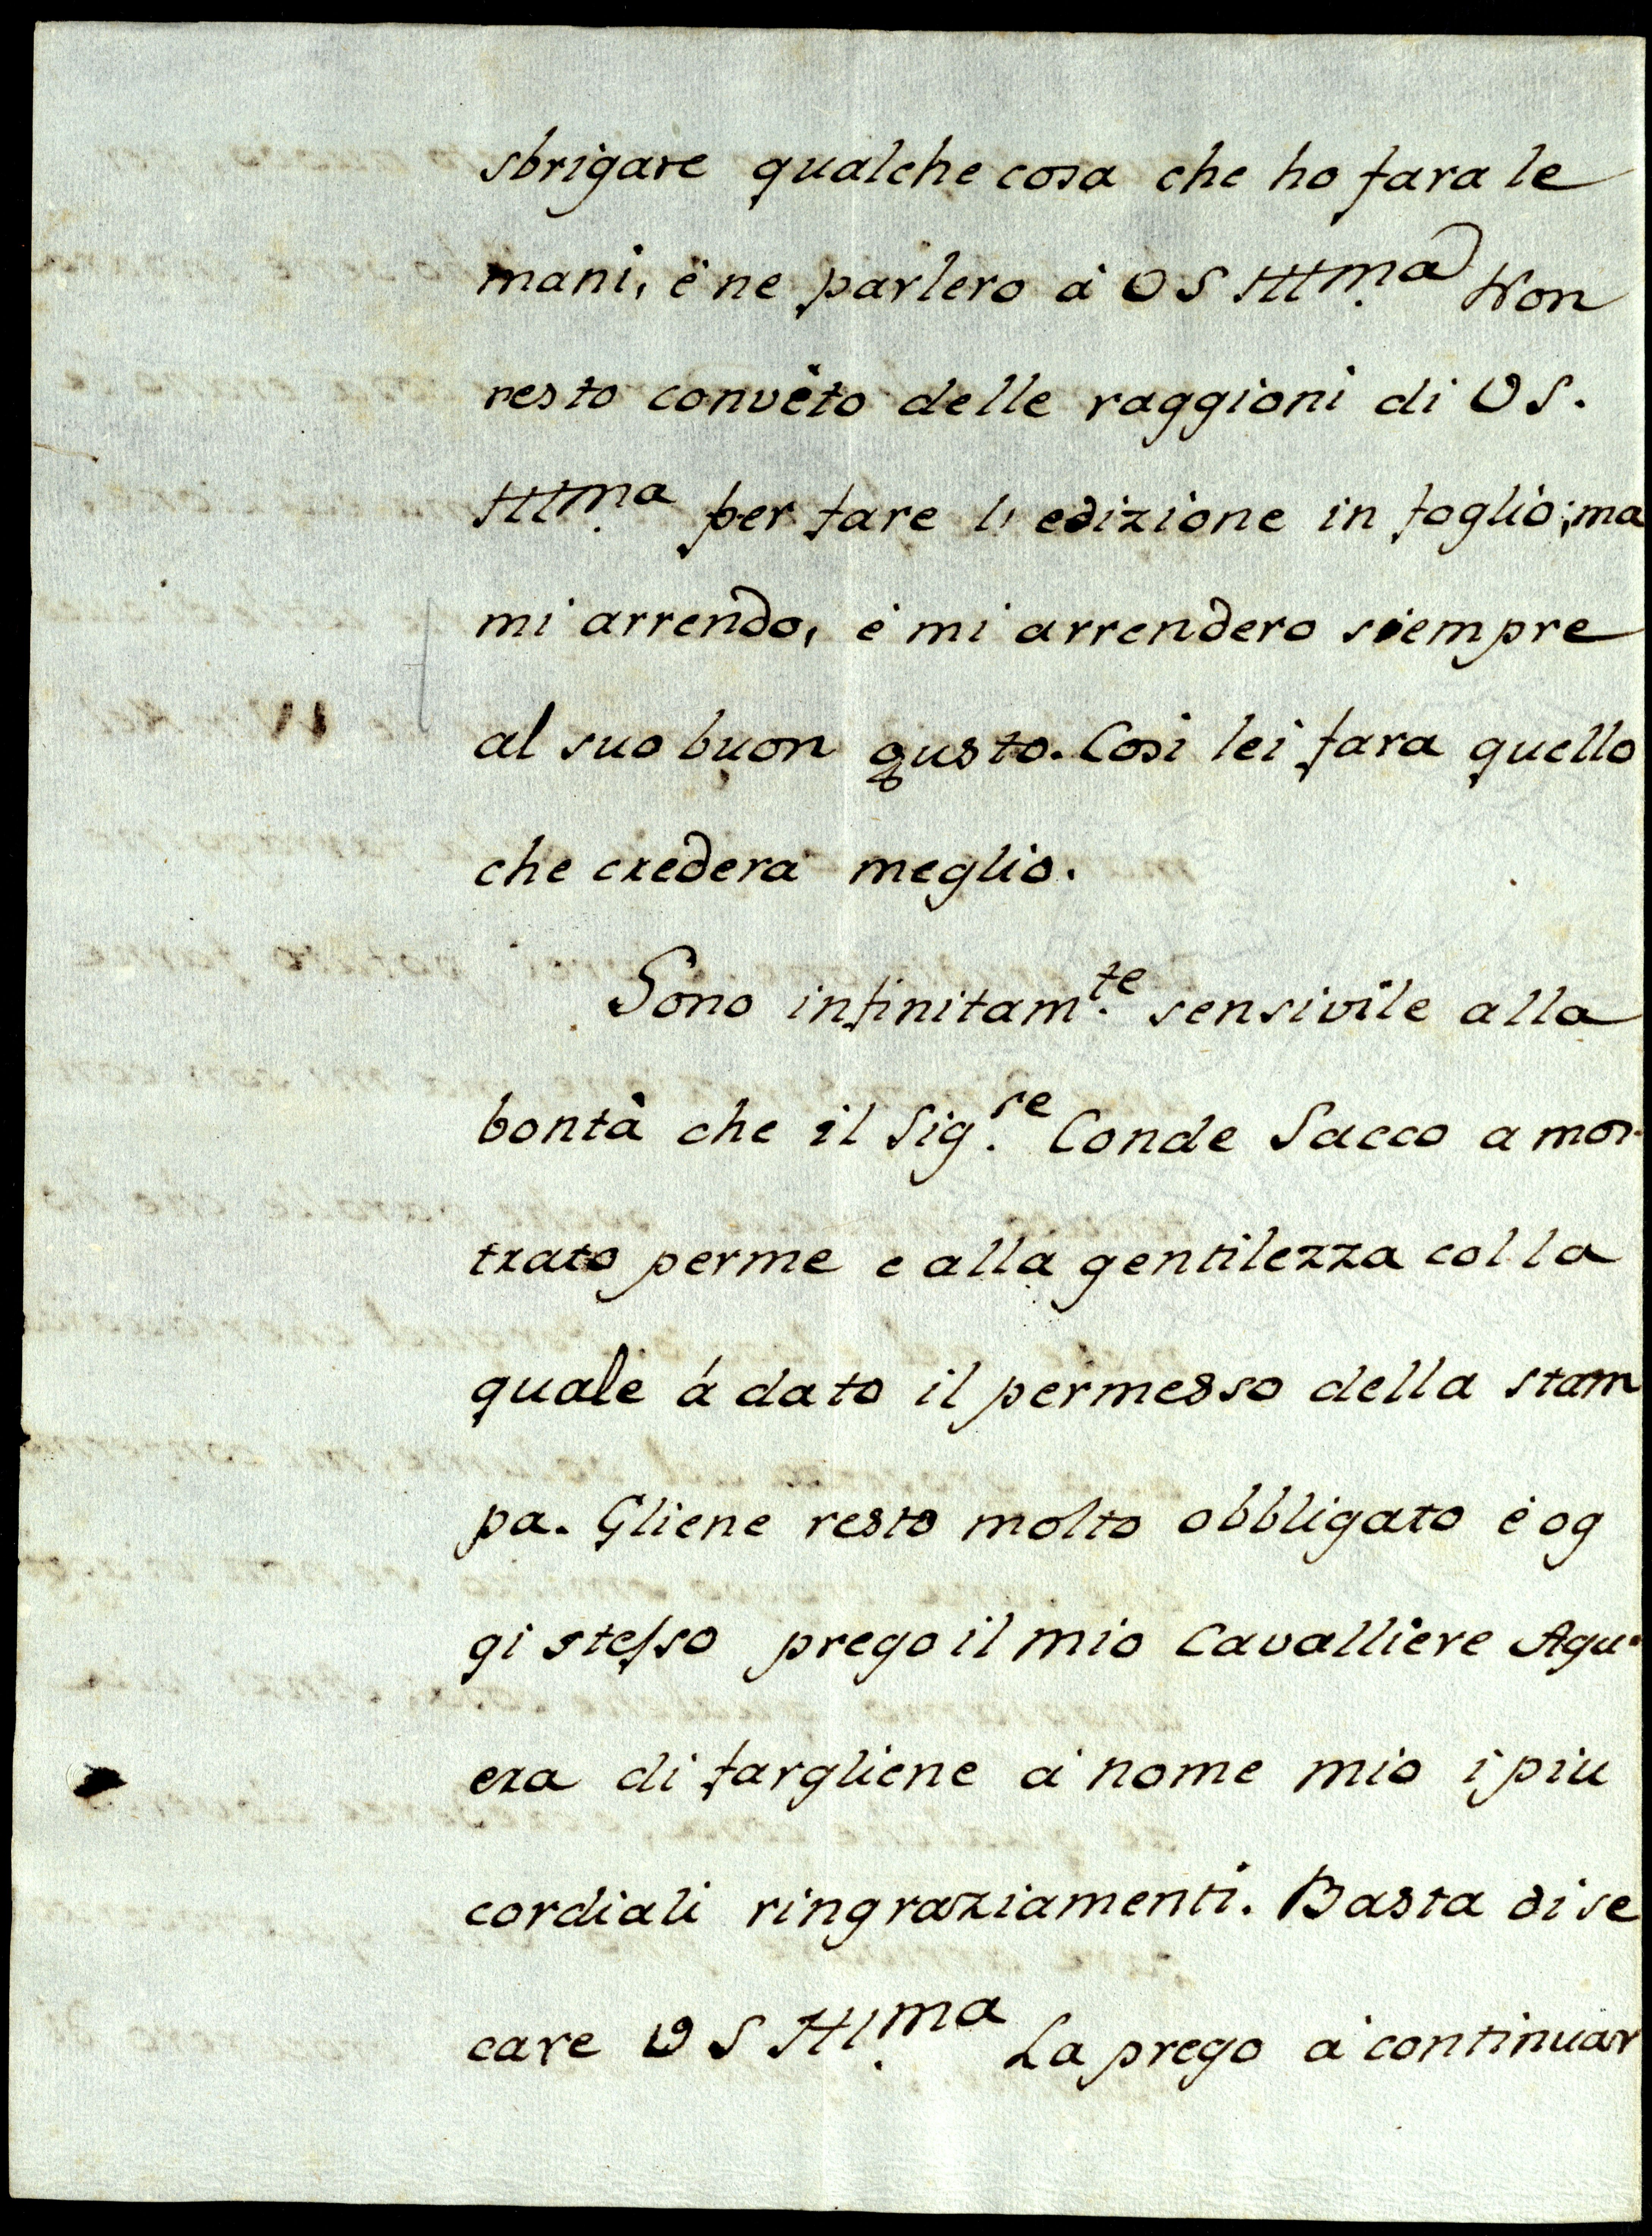 sbrigare qualche cosa che ho fara le
mani, è ne parlero à VS Illma Non
resto convèto delle raggioni di VS.
Illma per fare l' edizione in foglio; ma
mi arrendo, è mi arrendero siempre
al suo buon gusto. Cosi lei fara quello
che credera meglio.
Sono infinitamte sensivile alla
bontà che il Sig.re Conde Sacco a mos-
trato perme e alla gentilezza colla
quale á dato il permesso della stam
pa. Gliene resto molto obbligato è og
gi stesso prego il mio Cavalliere Agu-
era di fargliene à nome mio i piu
cordiali ringraziamenti. Basta di se
care VS Illma La prego à continuar